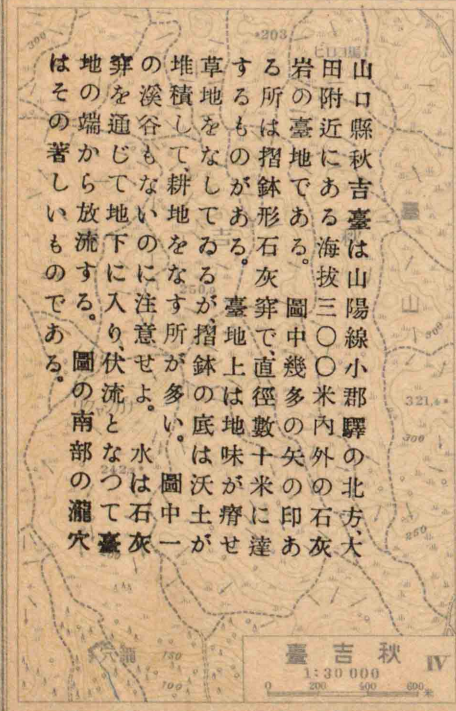 山口縣秋吉臺は山陽線小郡驛の北方、大
田附近にある海拔三〇〇米內外の石灰
岩の臺地である。　圖中幾多の矢の印あ
る所は摺鉢形石灰穽で、直徑數十米に達
するものがある。　臺地上は地味が瘠せ
草地をなしてゐるが、摺鉢の底は沃土が
堆積して、耕地をなす所が多い。　圖中一
の溪谷もないのに注意せよ。　水は石灰
穽を通じて地下に入り、伏流となつて臺
地の端から放流する。　圖の南部の瀧穴
はその著しいものである。
203
300
臺
山
321.4
300
300
250
242
瀧穴
150
100
臺吉秋
IV
1:30 000
0 200 400 600米